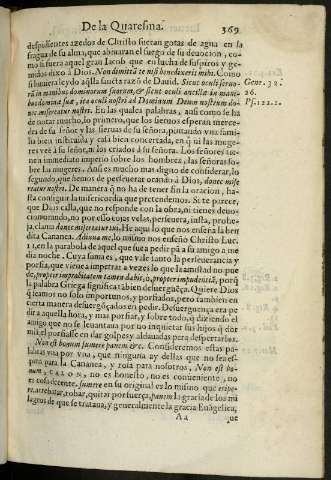 De la Quaresma. 369
despulientes azedos de Christo fueran gotas de agua en la
fragua de su alma, que abiuaran el fuego de su deuocion, co-
mo si fuera aquel gran Iacob que en lucha de suspiros y ge-
midos dixo à Dios. Non dimittã te nisi benedixeris mihi. Como
si huuiera leydo aq̃lla sancta razõ de Dauid. Sicut oculi seruo-
rũ in manibus dominorum suorum, & sicut oculi ancillæ in mani-
bus dominæ suæ, ita oculi nostri ad Dominum Deum nostrum do-
nec misereatur nostri. En las quales palabras, ansi como se ha
de notar mucho, lo primero, que los sieruos esperan merce-
des de su señor y las sieruas de su señora, pintando vna fami-
lia bien instruyda y casa bien concertada, en q̃ ni las muge-
res vee à su señor, ni los criados à su señora. Los señores tie-
nen immediato imperio sobre los hombres, las señoras so-
bre las mugeres. Ansi es mucho mas digno de considerar, lo
segundo, que hemos de perseuerar orando à Dios, donec mise
reatur nostri. De manera q̃ no ha de tener fin la oracion, has-
ta conseguir la misericordia que pretendemos. Si te parece,
que Dios calla, que no responde con la obra, ni tienes deuo-
cion orando, no por esso cojas velas, perseuera, insta,
ja, clama donec misereatur tui. He aqui lo que nos enseña la ben
dita Cananea. Adiuua me, lo mismo nos enseño Christo Luc.
11. en la parabola de aquel que fue a pedir pã a su amigo a me
dia noche. Cuya suma es, que vale tanto la perseuerancia y
porfia, que viene a impetrar a vezes lo que la amistad no pue
de, propter improbitatem tamen dabit, ò, propter impudentiã, porq̃
la palabra Griega significa tãbien desuerguẽça. Quiere Dios
q̃ seamos no solo importunos, y porfiados, pero tambien en
cierta manera desuergõçados en pedir. Desuerguença era pe
dir a aquella hora, y mas porfiar, y sobre todo, q̃ diziendo el
amigo que no se leuantaua por no inquietar sus hijos q̃ dor
miã el porfiasse en dar golpes y aldauadas para despertarlos.
Non est bonum sumere panem &c. Consideremos estas pa-
labras vna por vna, que ninguna ay dellas que no sea es-
para la Cananea, y rosa para nosotros, Non est bo-
num, CALON, no es honesto, no es conueniente, no
es cosa decente. sumere en su original es lo mismo que eripe-
re, arrebatar, robar, quitar por fuerça, panem la gracia de los mi
lagros de que se trataua, y generalmente la gracia Euãgelica,
Aa que
Gene. 32.
26.
Ps. 122. 2.